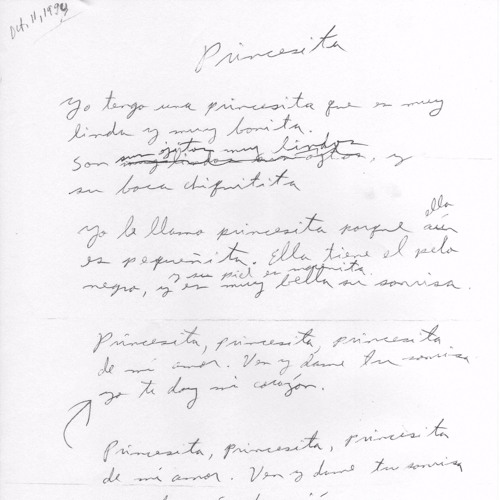 Oct. 11, 1994
Princesita
Yo tengo una princesita que es muy
linda y muy bonita.
sus ojitos muy lindos
Son muy lindos sus ojitos, y
su boca chiquitita
ella
Yo le llamo princesita porque aún
es pequeñita. Ella tiene el pelo
y su piel es morenita
negro, y es muy bella su sonrisa.
Princesita, princesita, princesita
de mi amor. Ven y dame tu sonrisa
yo te doy mi corazón.
Princesita, princesita, princesita
de mi amor. Ven y dame tu sonrisa